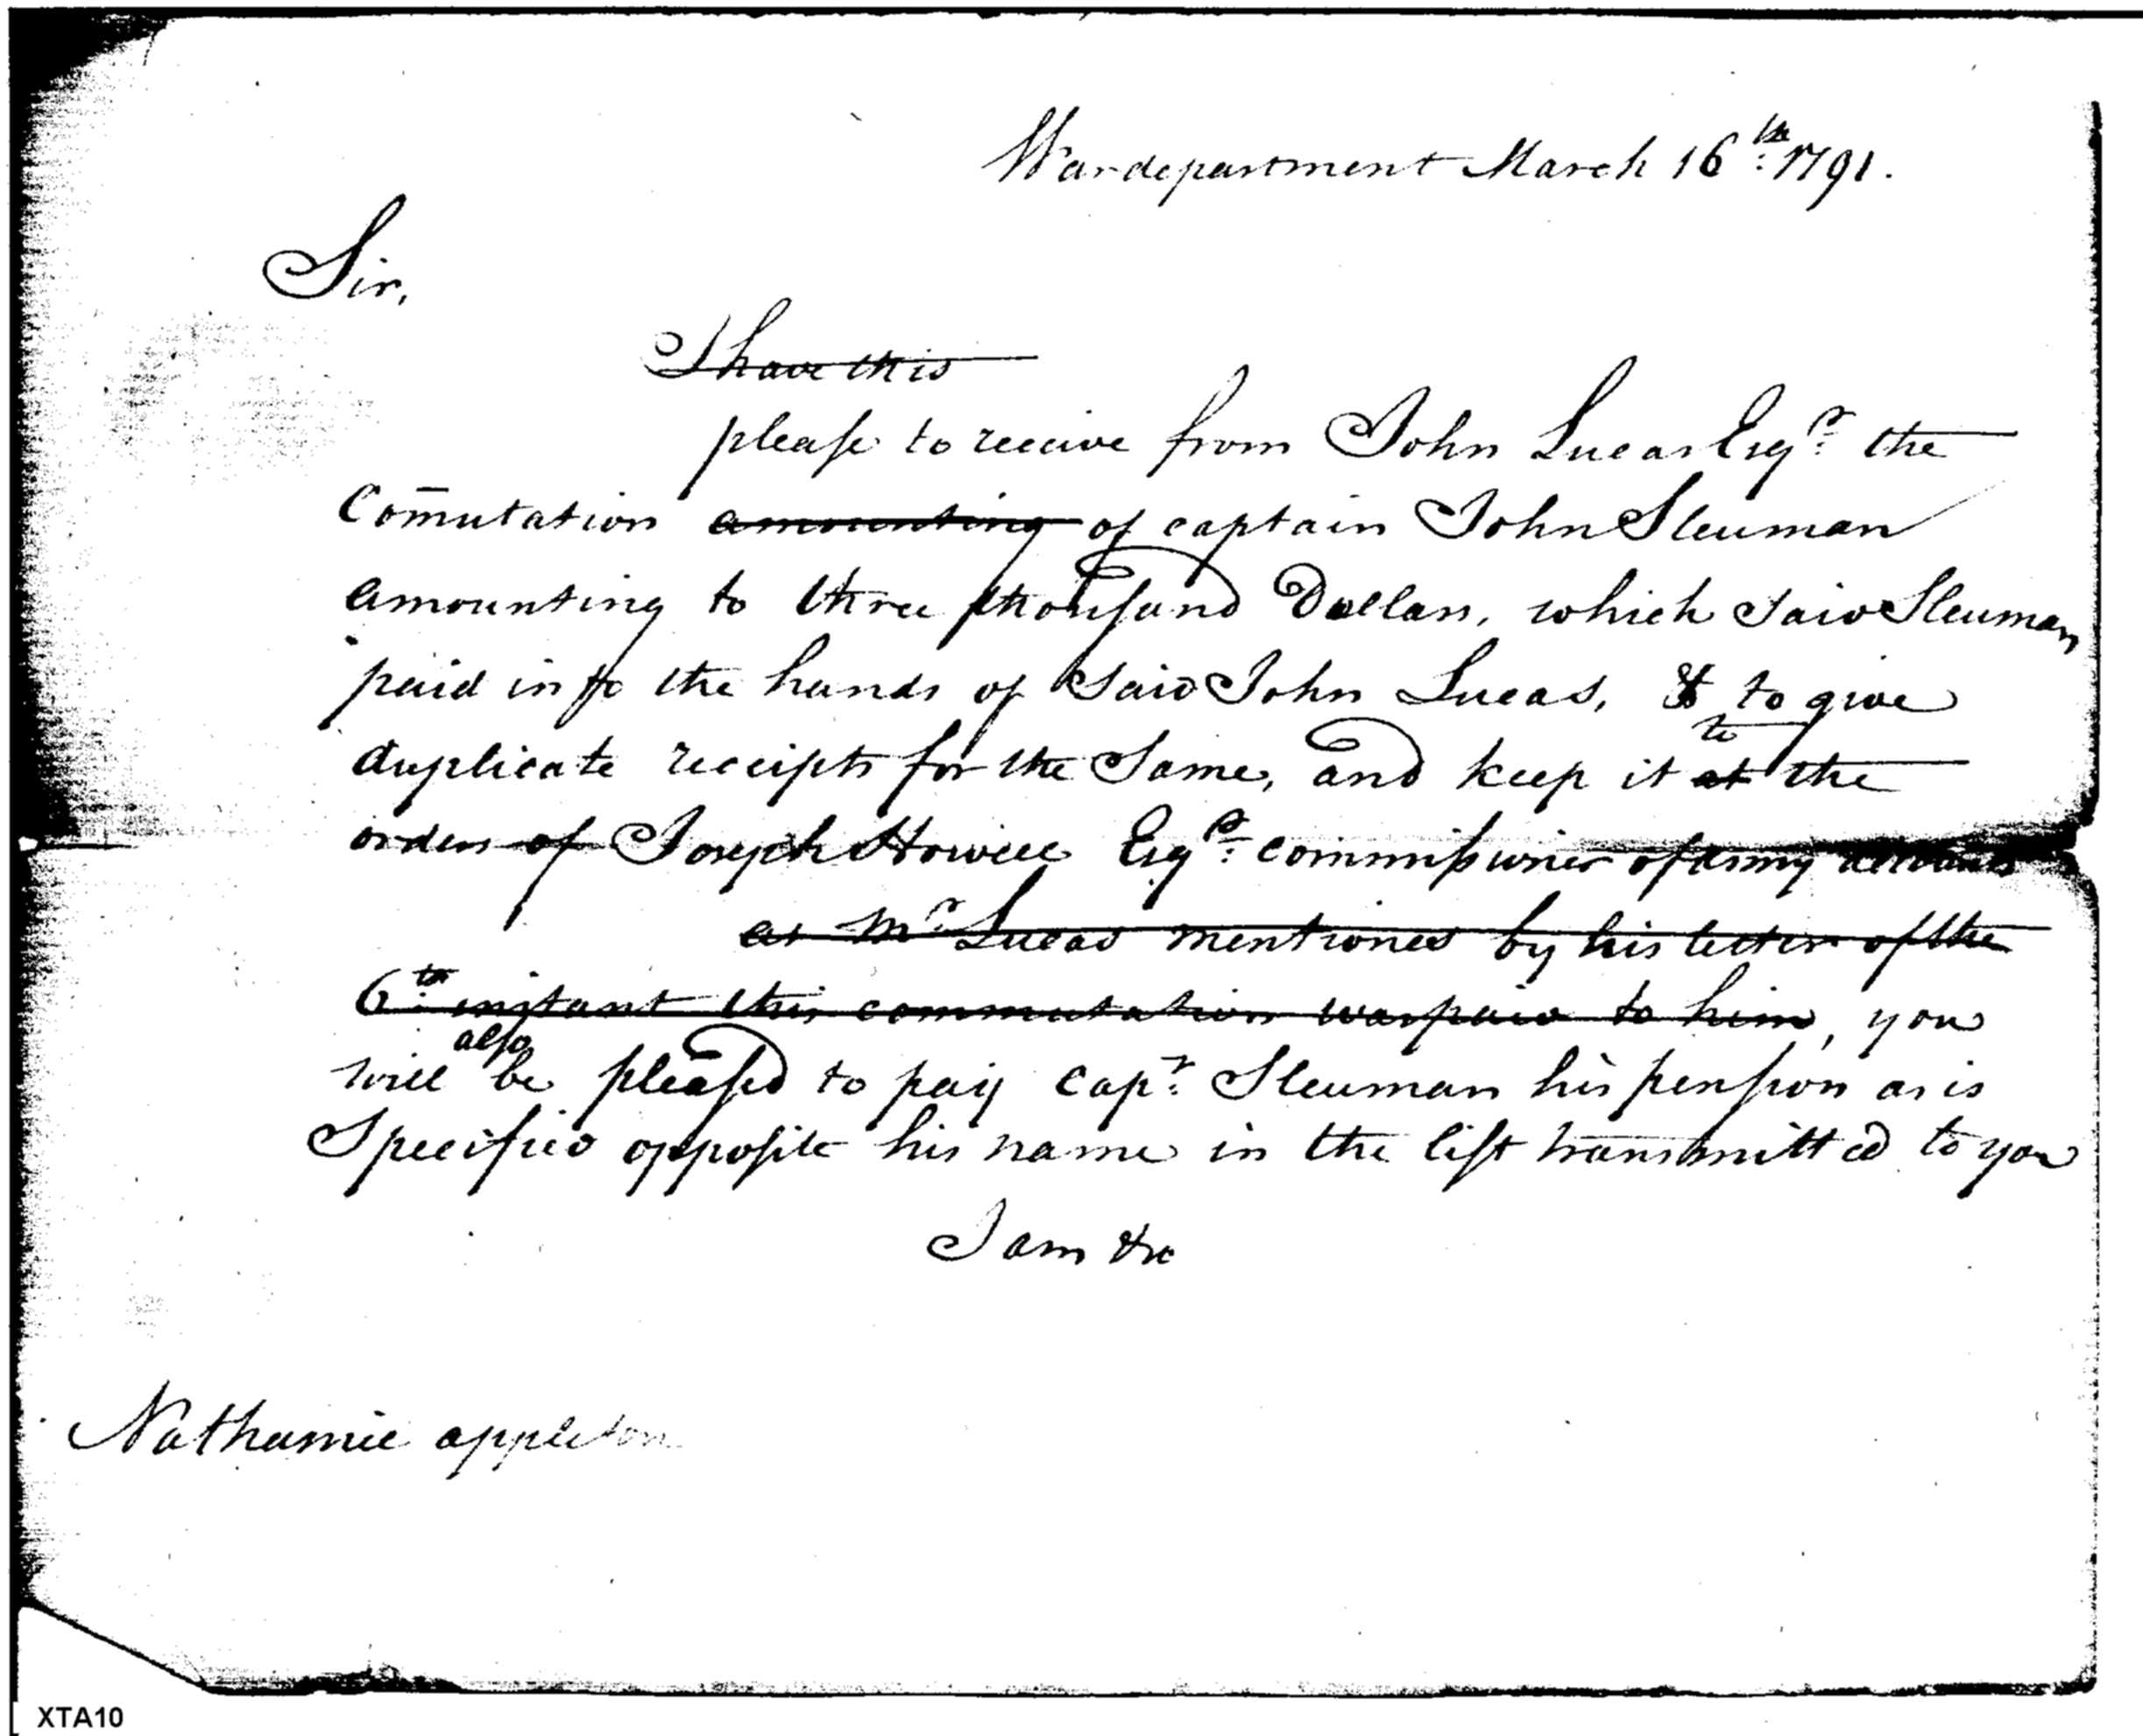 War department March 16th: 1791.
Sir,
I have this
please to receive from John Lucas Esqr: the
Com̄utation amounting of captain John Sleuman
amounting to three thousand Dollars, which said Sleuman
paid into the hands of said John Lucas, & to give
duplicate receipts for the Same, and keep it at to the
orders of Joseph Howell Esqr: commissioner of army accounts
as Mr Lucas mentioned by his letter of the
6th: instant this commutation was paid to him, you
will also be pleased to pay Capt: Sleuman his pension as is
Specified opposite his name in the list transmitted to you
I am &c
Nathaniel appleton
XTA10